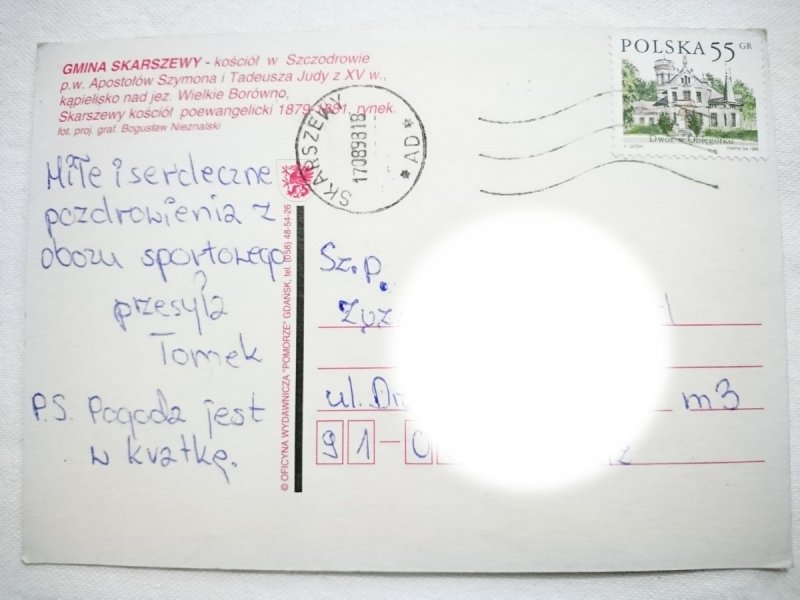 GMINA SKARSZEWY - kościół w Szczodrowie
p.w. Apostołów Szymona i Tadeusza Judy z XV w.,
kąpielisko nad jez. Wielkie Borówno,
Skarszewy kościół poewangelicki 1879-1881, rynek.
fot. proj. graf. Bogusław Nieznalski
POLSKA 55 GR
Dwór w Oblęgorku
SKARSZEWY
17089818
* AD *
Miłe i serdeczne
pozdrowienia z
obozu sportowego
przesyła
Tomek
P.S. Pogoda jest
w kratkę.
© OFICYNA WYDAWNICZA "POMORZE" GDAŃSK, tel. (058) 48-54-26
Sz.p.
ul.
m3
91-0